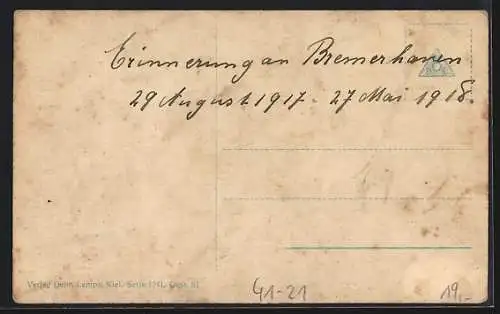 Erinnerung an Bremerhaven
29 August 1917 - 27 Mai 1918.
Verlag Gebr. Lempe, Kiel. Serie
41-21
19,-